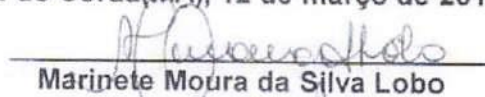 de Corda(MA), 12 de março de 201
Marinete Moura da Silva Lobo